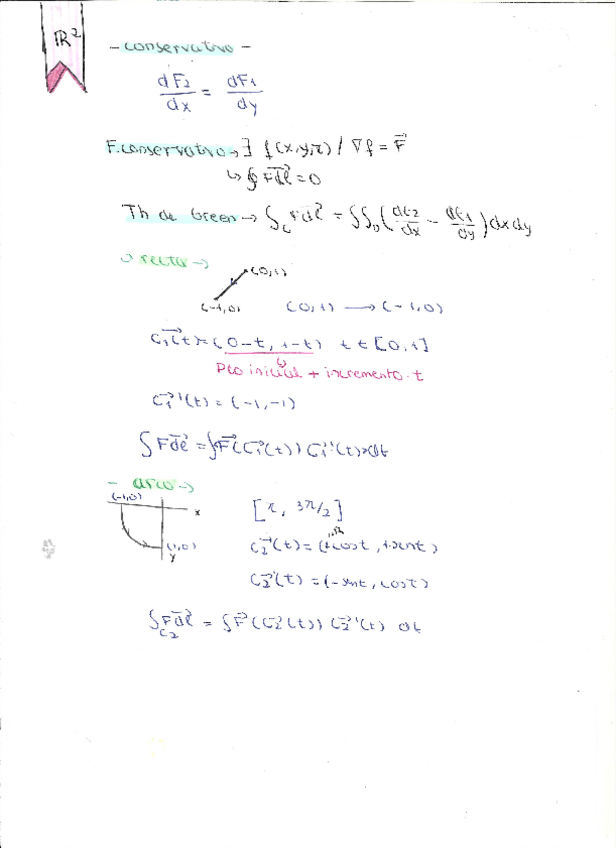 ℝ²
- conservativo -
dF₂/dx = dF₁/dy
F. conservativo → ∃ f(x,y,z) / ∇f = F⃗
↳ ∮ F⃗dl⃗ = 0
Th de Green → ∫_C F⃗dl⃗ = ∬_D (dF₂/dx - dF₁/dy) dx dy
recta →
(0,1)
(-1,0)
(0,1) → (-1,0)
C₁⃗(t) = (0-t, 1-t) t ∈ [0,1]
Pto inicial + incremento·t
C₁⃗'(t) = (-1,-1)
∫ F⃗dl⃗ = ∫ F⃗(C₁⃗(t)) C₁⃗'(t) dt
- arco →
(-1,0)
x
(1,0)
y
[π, 3π/2]
C₂⃗(t) = (1·cost, 1·sent)
C₂⃗'(t) = (-sent, cost)
∫_C₂ F⃗dl⃗ = ∫ F⃗(C₂⃗(t)) C₂⃗'(t) dt